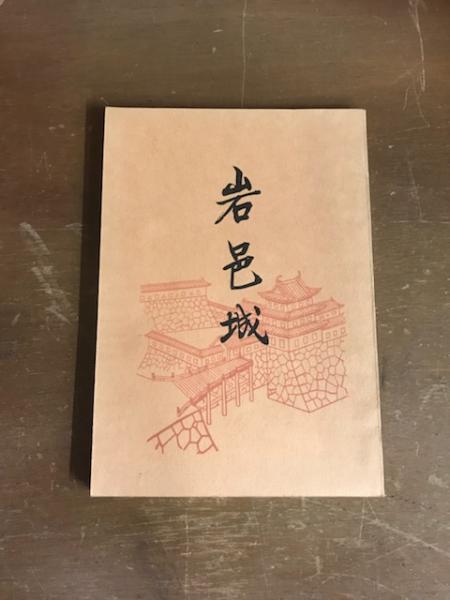 岩邑城